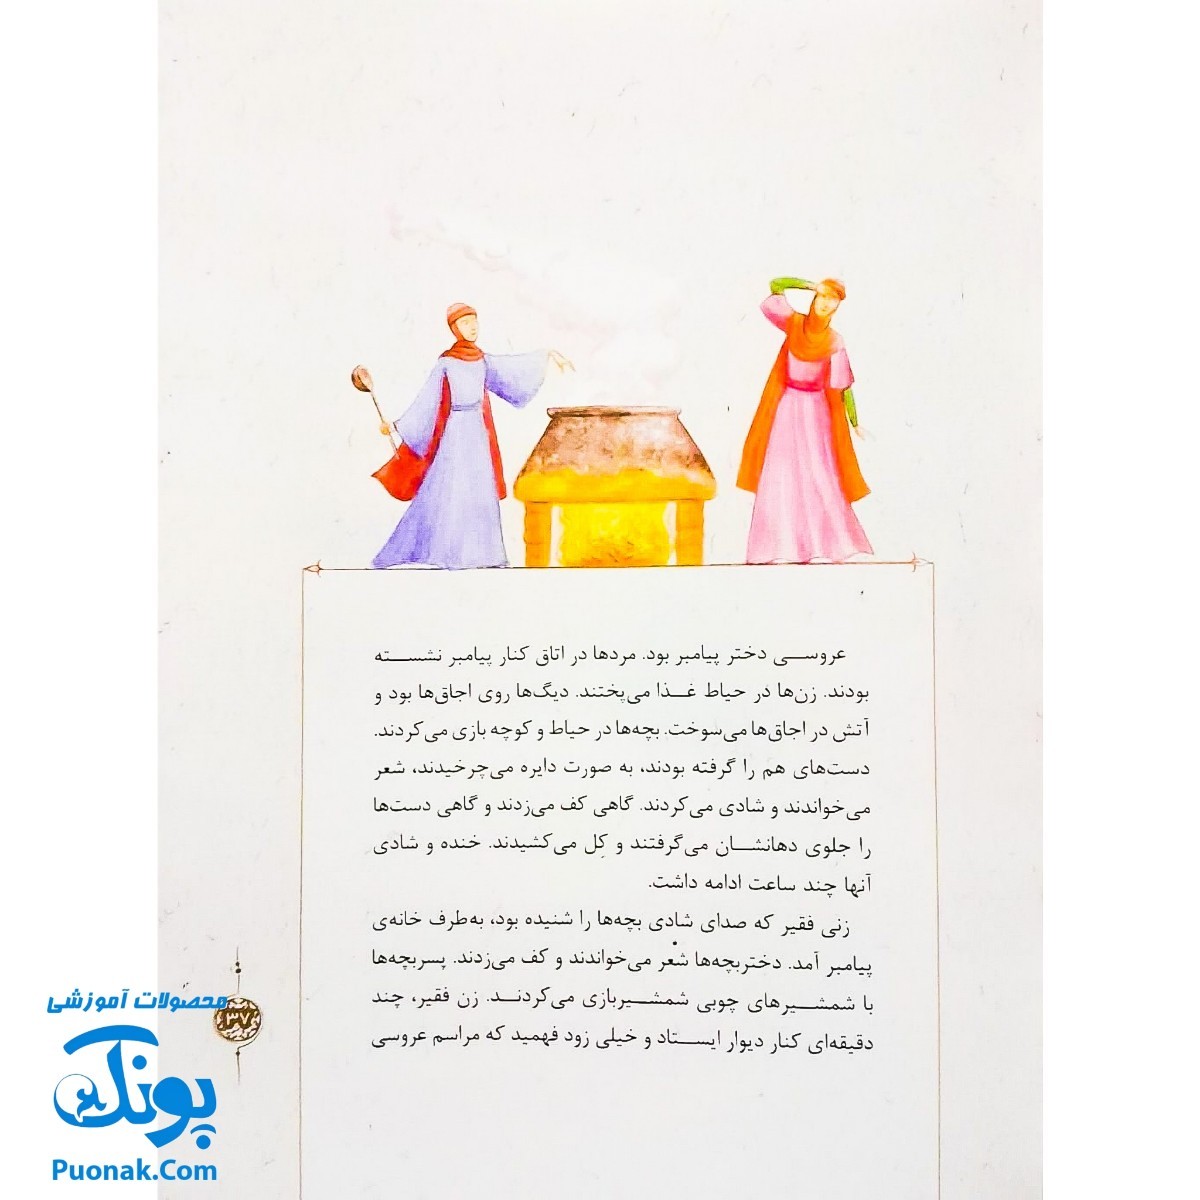 عروسی دختر پیامبر بود. مردها در اتاق کنار پیامبر نشسته
بودند. زن‌ها در حیاط غذا می‌پختند. دیگ‌ها روی اجاق‌ها بود و
آتش در اجاق‌ها می‌سوخت. بچه‌ها در حیاط و کوچه بازی می‌کردند.
دست‌های هم را گرفته بودند، به صورت دایره می‌چرخیدند، شعر
می‌خواندند و شادی می‌کردند. گاهی کف می‌زدند و گاهی دست‌ها
را جلوی دهانشان می‌گرفتند و کِل می‌کشیدند. خنده و شادی
آنها چند ساعت ادامه داشت.
زنی فقیر که صدای شادی بچه‌ها را شنیده بود، به‌طرف خانه‌ی
پیامبر آمد. دختربچه‌ها شعر می‌خواندند و کف می‌زدند. پسربچه‌ها
با شمشیرهای چوبی شمشیربازی می‌کردند. زن فقیر، چند
دقیقه‌ای کنار دیوار ایستاد و خیلی زود فهمید که مراسم عروسی
۳۷
محصولات آموزشی
پونک
Puonak.Com